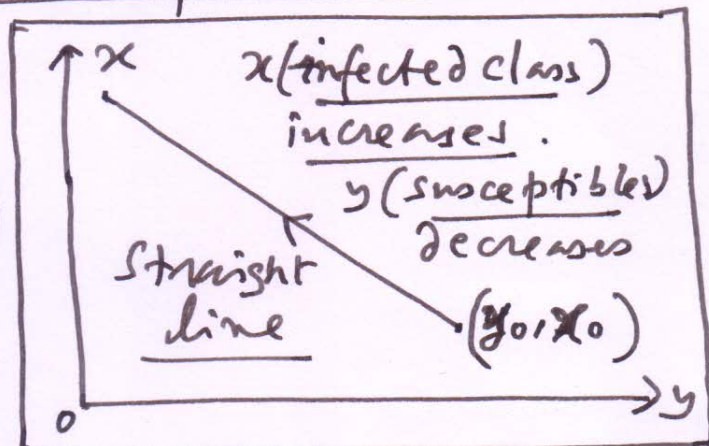 x
x(infected class)
increases.
y(susceptibles)
decreases
Straight
line
(y0, x0)
0
y